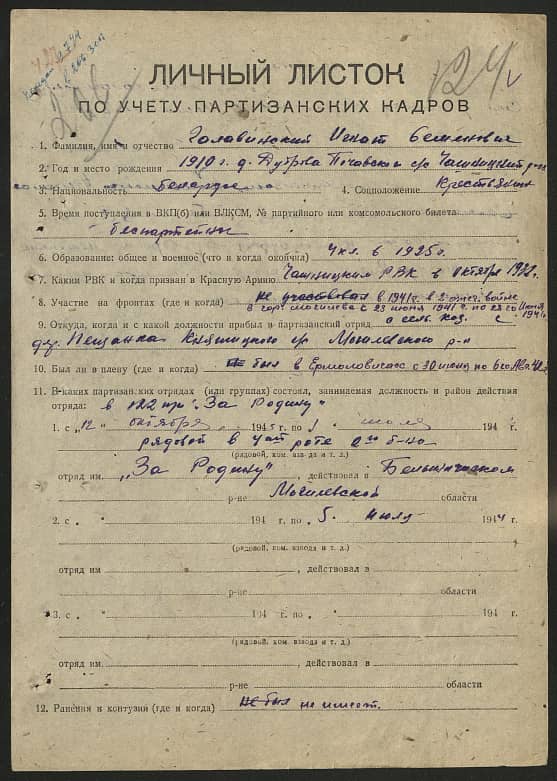 124
ЛИЧНЫЙ ЛИСТОК
ПО УЧЕТУ ПАРТИЗАНСКИХ КАДРОВ
1. Фамилия, имя и отчество Галавинский Игнат Семенович
2. Год и место рождения 1910 г. д. Дуброва Почавской с/с Чашницкий р-он
3. Национальность беларус 4. Соцположение Крестьянин
5. Время поступления в ВКП(б) или ВЛКСМ, № партийного или комсомольского билета
беспартейный
6. Образование: общее и военное (что и когда окончил) 4 кл. в 1925 г.
7. Каким РВК и когда призван в Красную Армию Чашницким РВК в октябре
8. Участие на фронтах (где и когда) не участвовал в 1941 г. в 2 отеч. войне
в гор. Могилева с 23 июня 1941 г. по 28 го Июня
9. Откуда, когда и с какой должности прибыл в партизанский отряд с 1941
д. Пещанка Княжицкого с/с Могилевского р-н
10. Был ли в плену (где и когда) не был в с 30 июня по 6
11. В каких партизанских отрядах (или группах) состоял, занимаемая должность и район действия
отряда: в 122 пр "За Родину"
1. с „12" октября 194 г. по июля 194 г.
рядовой в роте б-на
(рядовой, ком. взвода и т. д.)
отряд им „За Родину" , действовал в Белыничском
р-не Могилевской области
2. с 194 г. по 5. июля 1944 г.
(рядовой, ком. взвода и т. д.)
отряд им , действовал в
р-не области
3. с 194 г. по 194 г.
(рядовой, ком. взвода и т. д.)
отряд им , действовал в
р-не области
12. Ранения и контузия (где и когда) не был не имеет.